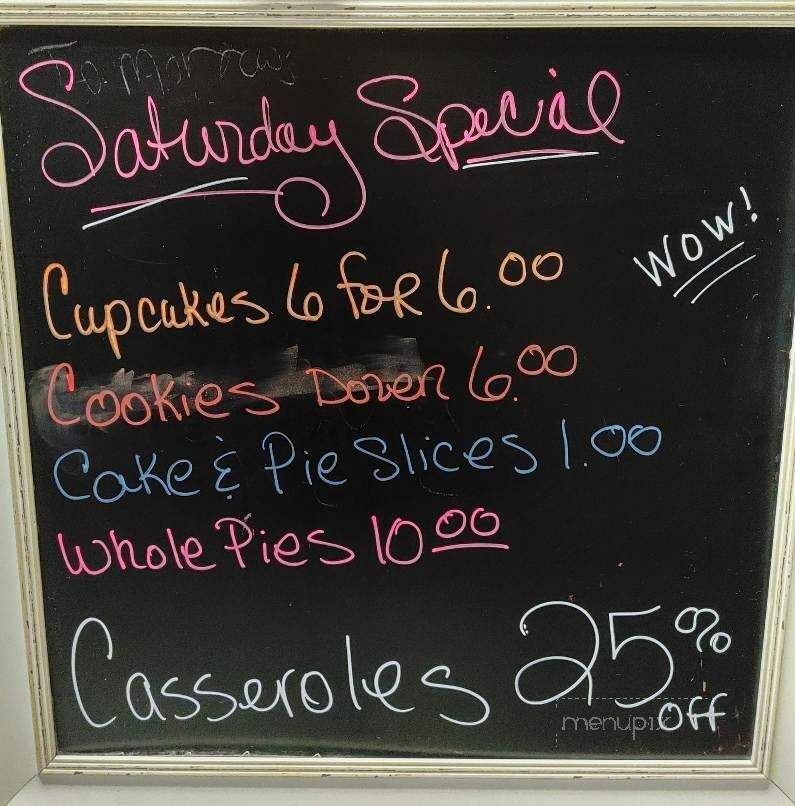 Tomorrows
Saturday Special
WOW!
Cupcakes 6 for 6.00
Cookies Dozen 6.00
Cake & Pie Slices 1.00
Whole Pies 10 00
Casseroles 25% off
menupix